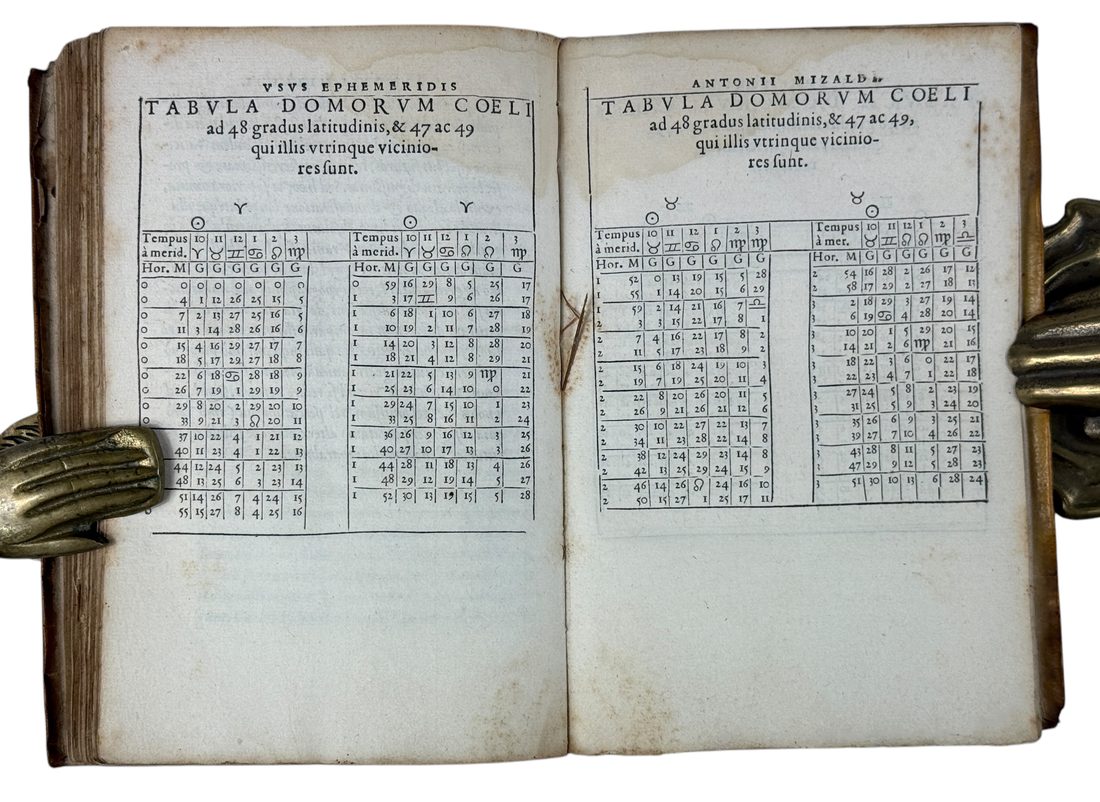 VSVS EPHEMERIDIS
TABVLA DOMORVM COELI
ad 48 gradus latitudinis, & 47 ac 49
qui illis vtrinque vicinio-
res sunt.
♈
☉
Tempus 10 11 12 1 2 3
à merid. ♈ ♉ ♊ ♋ ♌ ♍
Hor. M G G G G G G
0 0 0 0 0 0 0 0
0 4 1 12 26 25 15 5
0 7 2 13 27 25 16 5
0 11 3 14 28 26 16 6
0 15 4 16 29 27 17 7
0 18 5 17 29 27 18 8
0 22 6 18 ♋ 28 18 9
0 26 7 19 1 29 19 9
0 29 8 20 2 29 20 10
0 33 9 21 3 ♌ 20 11
37 10 22 4 1 21 12
40 11 23 4 1 22 13
44 12 24 5 2 23 13
48 13 25 6 3 23 14
51 14 26 7 4 24 15
55 15 27 8 4 25 16
♈
☉
Tempus 10 11 12 1 2 3
à merid. ♈ ♉ ♋ ♌ ♌ ♍
Hor. M G G G G G G
0 59 16 29 8 5 25 17
1 3 17 ♊ 9 6 26 17
1 6 18 1 10 6 27 18
1 10 19 2 11 7 28 19
1 14 20 3 12 8 28 20
1 18 21 4 12 8 29 21
1 21 22 5 13 9 ♍ 21
1 25 23 6 14 10 0 22
1 29 24 7 15 10 1 23
1 33 25 8 16 11 2 24
1 36 26 9 16 12 3 25
1 40 27 10 17 13 3 26
1 44 28 11 18 13 4 26
1 48 29 12 19 14 5 27
1 52 30 13 19 15 5 28
ANTONII MIZALDI
TABVLA DOMORVM COELI
ad 48 gradus latitudinis, & 47 ac 49,
qui illis vtrinque vicinio-
res sunt.
♉
☉
Tempus 10 11 12 1 2 3
à merid. ♉ ♊ ♋ ♌ ♍ ♍
Hor. M G G G G G G
1 52 0 13 19 15 5 28
1 55 1 14 20 15 6 29
1 59 2 14 21 16 7 ♎
2 3 3 15 22 17 8 1
2 7 4 16 22 17 8 2
2 11 5 17 23 18 9 2
2 15 6 18 24 19 10 3
2 19 7 19 25 20 11 4
2 22 8 20 26 20 11 5
2 26 9 21 26 21 12 6
2 30 10 22 27 22 13 7
2 34 11 23 28 22 14 8
2 38 12 24 29 23 14 8
2 42 13 25 29 24 15 9
2 46 14 26 ♌ 24 16 10
2 50 15 27 1 25 17 11
♉
☉
Tempus 10 11 12 1 2 3
à mer. ♉ ♊ ♌ ♌ ♍ ♎
Hor. M G G G G G G
2 54 16 28 2 26 17 12
2 58 17 29 2 27 18 13
3 2 18 29 3 27 19 14
3 6 19 ♋ 4 28 20 14
3 10 20 1 5 29 20 15
3 14 21 2 6 ♍ 21 16
3 18 22 3 6 0 22 17
3 22 23 4 7 1 22 18
3 27 24 5 8 2 23 19
3 31 25 5 9 3 24 20
3 35 26 6 9 3 25 21
3 39 27 7 10 4 26 22
3 43 28 8 11 5 27 23
3 47 29 9 12 5 28 23
3 51 30 10 13 6 28 24